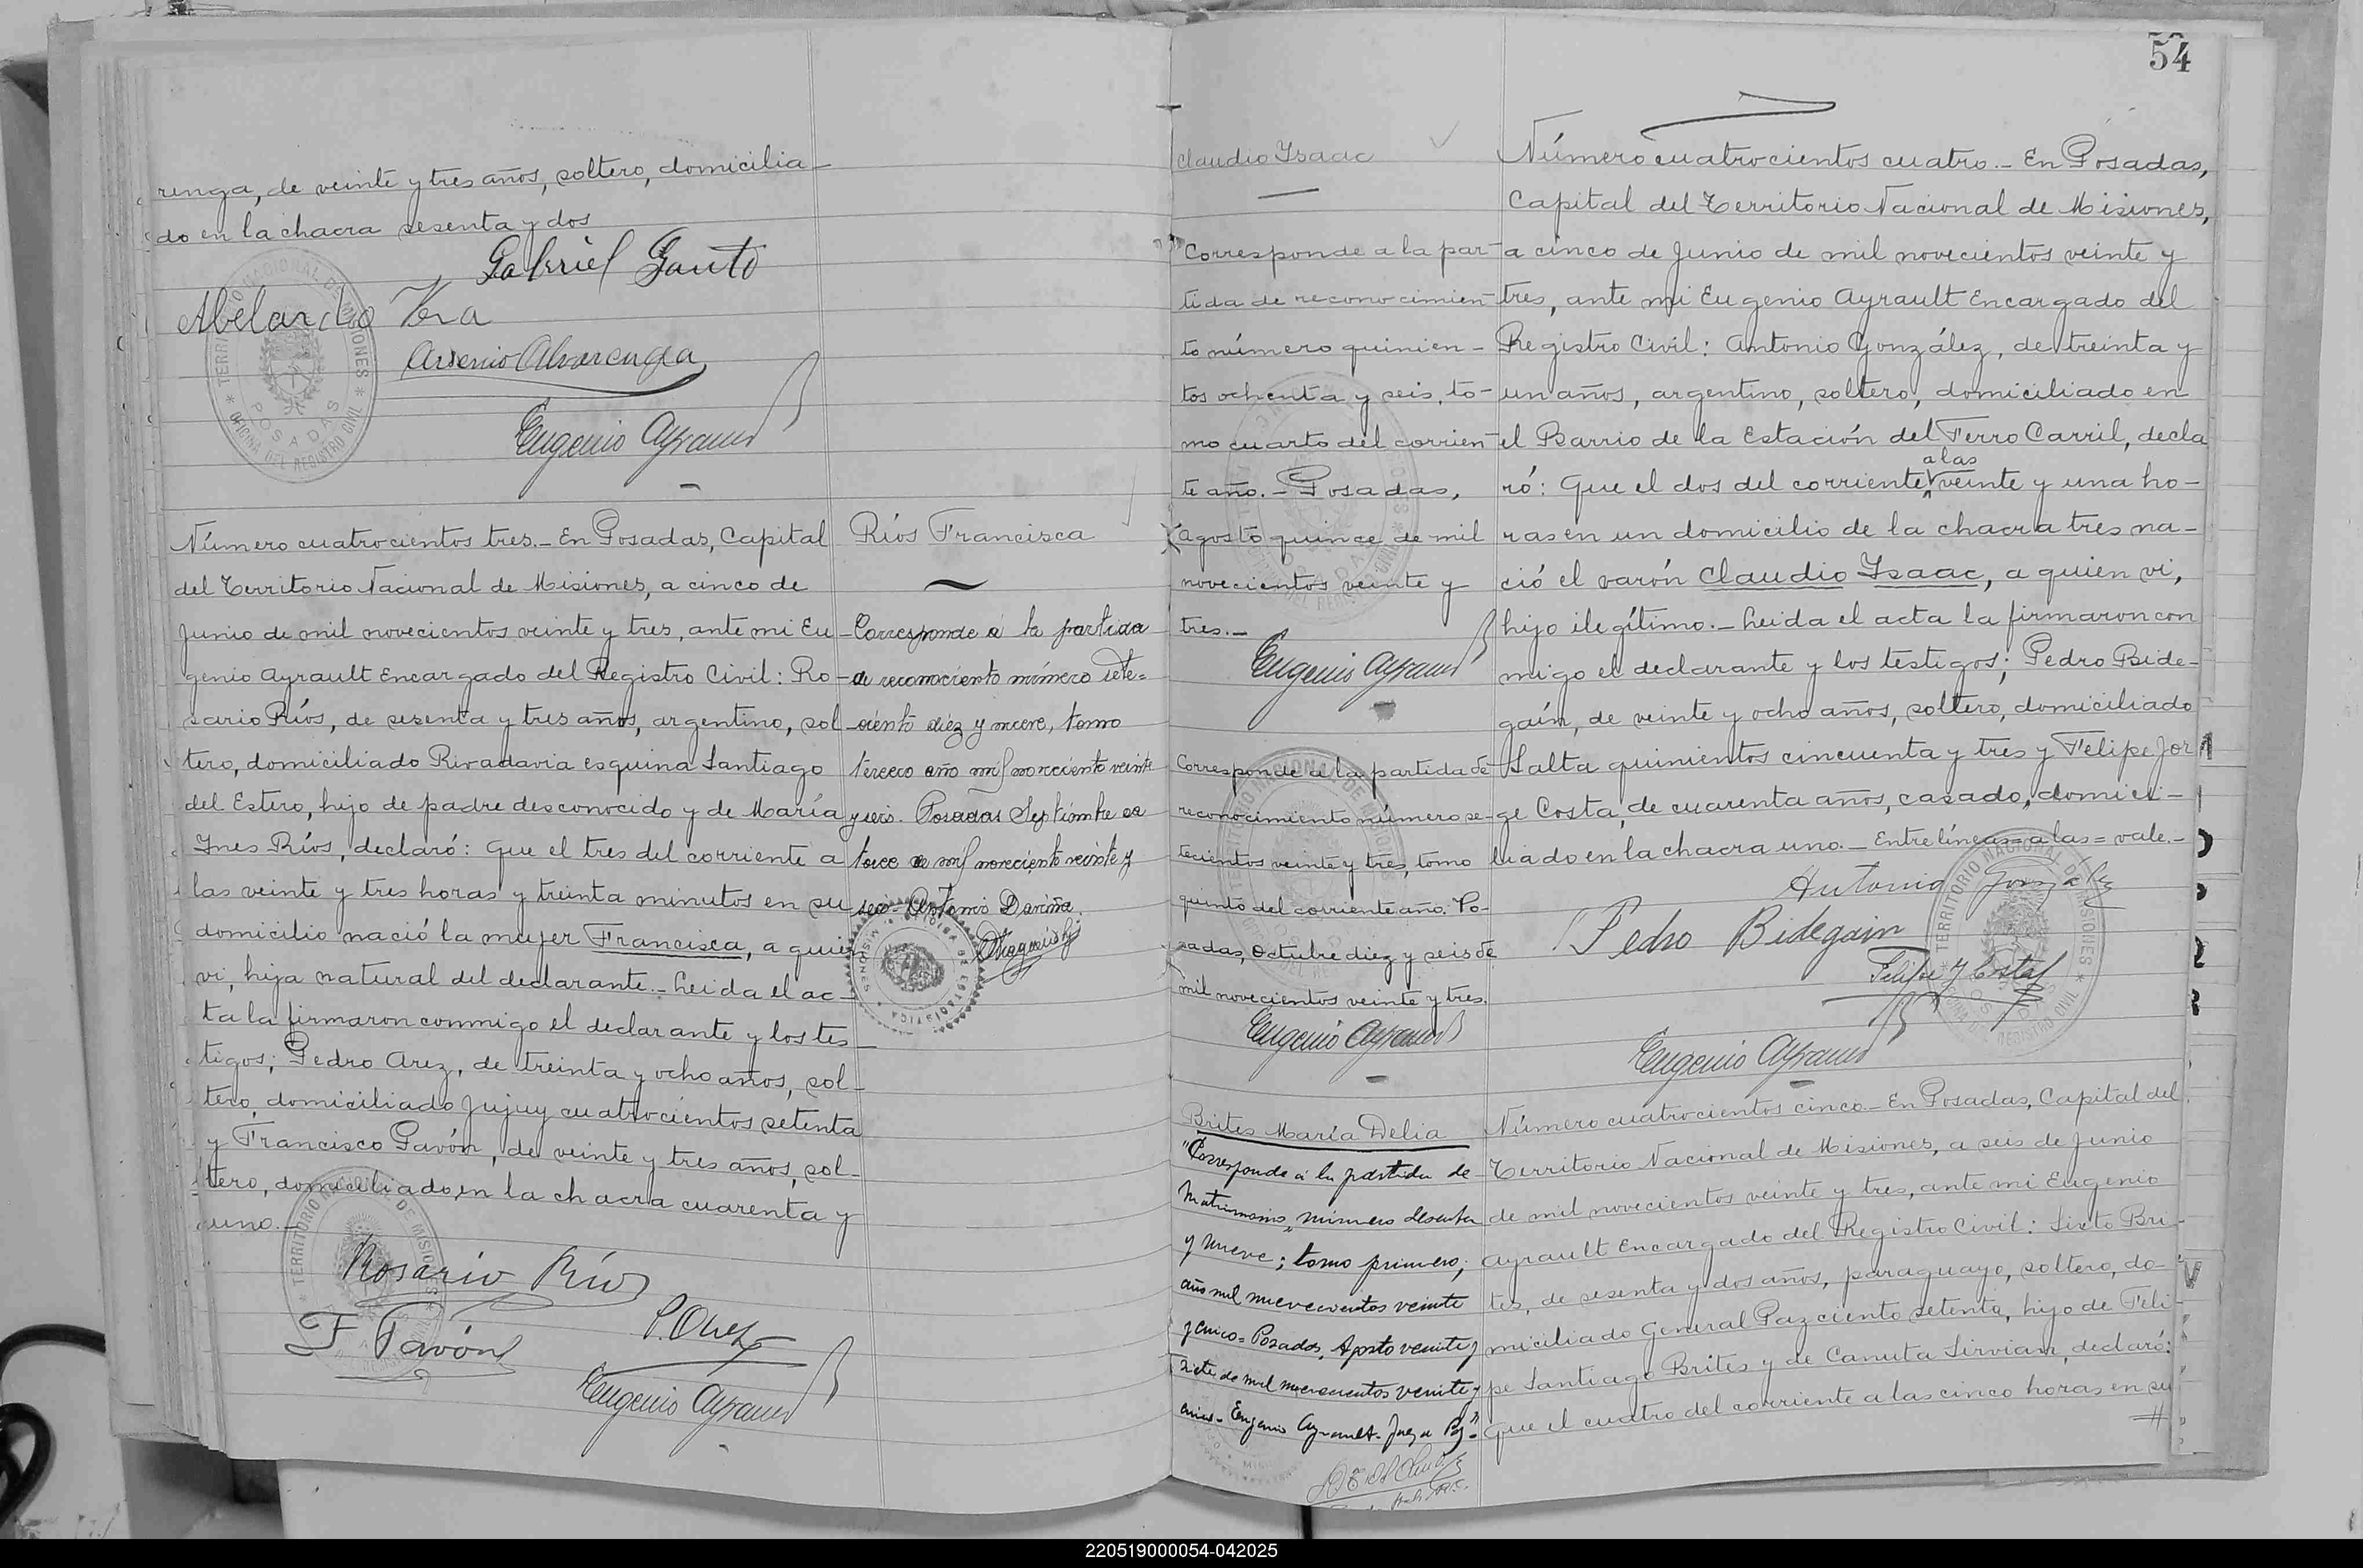 renga, de veinte y tres años, soltero, domicilia-
do en la chacra sesenta y dos
Gabriel Gauto
Abelardo Vera
Arsenio Alvarenga
Eugenio Ayrault
TERRITORIO NACIONAL DE MISIONES
POSADAS
OFICINA DEL REGISTRO CIVIL
Número cuatrocientos tres.- En Posadas, Capital
del Territorio Nacional de Misiones, a cinco de
Junio de mil novecientos veinte y tres, ante mi Eu-
genio Ayrault Encargado del Registro Civil: Ro-
sario Ríos, de sesenta y tres años, argentino, sol-
tero, domiciliado Rivadavia esquina Santiago
del Estero, hijo de padre desconocido y de María
Ynes Ríos, declaró: Que el tres del corriente a
las veinte y tres horas y treinta minutos en su
domicilio nació la mujer Francisca, a quien
vi, hija natural del declarante.- Leida el ac-
ta la firmaron conmigo el declarante y los tes-
tigos; Pedro Arez, de treinta y ocho años, sol-
tero, domiciliado Jujuy cuatrocientos setenta
y Francisco Pavón, de veinte y tres años, sol-
tero, domiciliado en la chacra cuarenta y
uno.-
Rosario Ríos
F Pavón
Eugenio Ayrault
Ríos Francisca
Corresponde a la partida
de reconociento número sete=
ciento diez y nueve, tomo
tercero año mil novecientos veinte
y seis. Posadas Septiembre
de mil novecientos veinte y
seis- Antonio
54
Claudio Ysaac
Corresponde a la par-
tida de reconocimien-
to número quinien-
tos ochenta y seis, to-
mo cuarto del corrien-
te año.- Posadas,
Agosto quince de mil
novecientos veinte y
tres.-
Eugenio Ayrault
Corresponde a la partida de
reconocimiento número se-
tecientos veinte y tres, tomo
quinto del corriente año. Po-
sadas, Octubre diez y seis de
mil novecientos veinte y tres.
Eugenio Ayrault
Número cuatrocientos cuatro.- En Posadas,
Capital del Territorio Nacional de Misiones,
a cinco de Junio de mil novecientos veinte y
tres, ante mi Eugenio Ayrault Encargado del
Registro Civil: Antonio González, de treinta y
un años, argentino, soltero, domiciliado en
el Barrio de la Estación del Ferro Carril, decla
ró: Que el dos del corriente a las veinte y una ho-
ras en un domicilio de la chacra tres na-
ció el varón Claudio Ysaac, a quien vi,
hijo ilegítimo.- Leida el acta la firmaron con
migo el declarante y los testigos; Pedro Bide-
gain, de veinte y ocho años, soltero, domiciliado
Salta quinientos cincuenta y tres y Felipe Jor
ge Costa, de cuarenta años, casado, domici-
liado en la chacra uno.- Entre líneas=a las=vale.-
Antonio González
Pedro Bidegain
Felipe J Costa
Eugenio Ayrault
Brites María Delia
"Corresponde á la partida de
Matrimonio, número
y nueve; tomo primero;
año mil novecientos veinte
y cinco= Posadas, Agosto veinte y
siete de mil novecientos veinte y
cinco- Eugenio Ayrault- Juez
Número cuatrocientos cinco.- En Posadas, Capital del
Territorio Nacional de Misiones, a seis de Junio
de mil novecientos veinte y tres, ante mi Eugenio
Ayrault Encargado del Registro Civil: Sixto Bri-
tes, de sesenta y dos años, paraguayo, soltero, do-
miciliado General Paz ciento setenta, hijo de Feli-
pe Santiago Brites y de Canuta Servian, declaró:
Que el cuatro del corriente a las cinco horas en su
220519000054-042025